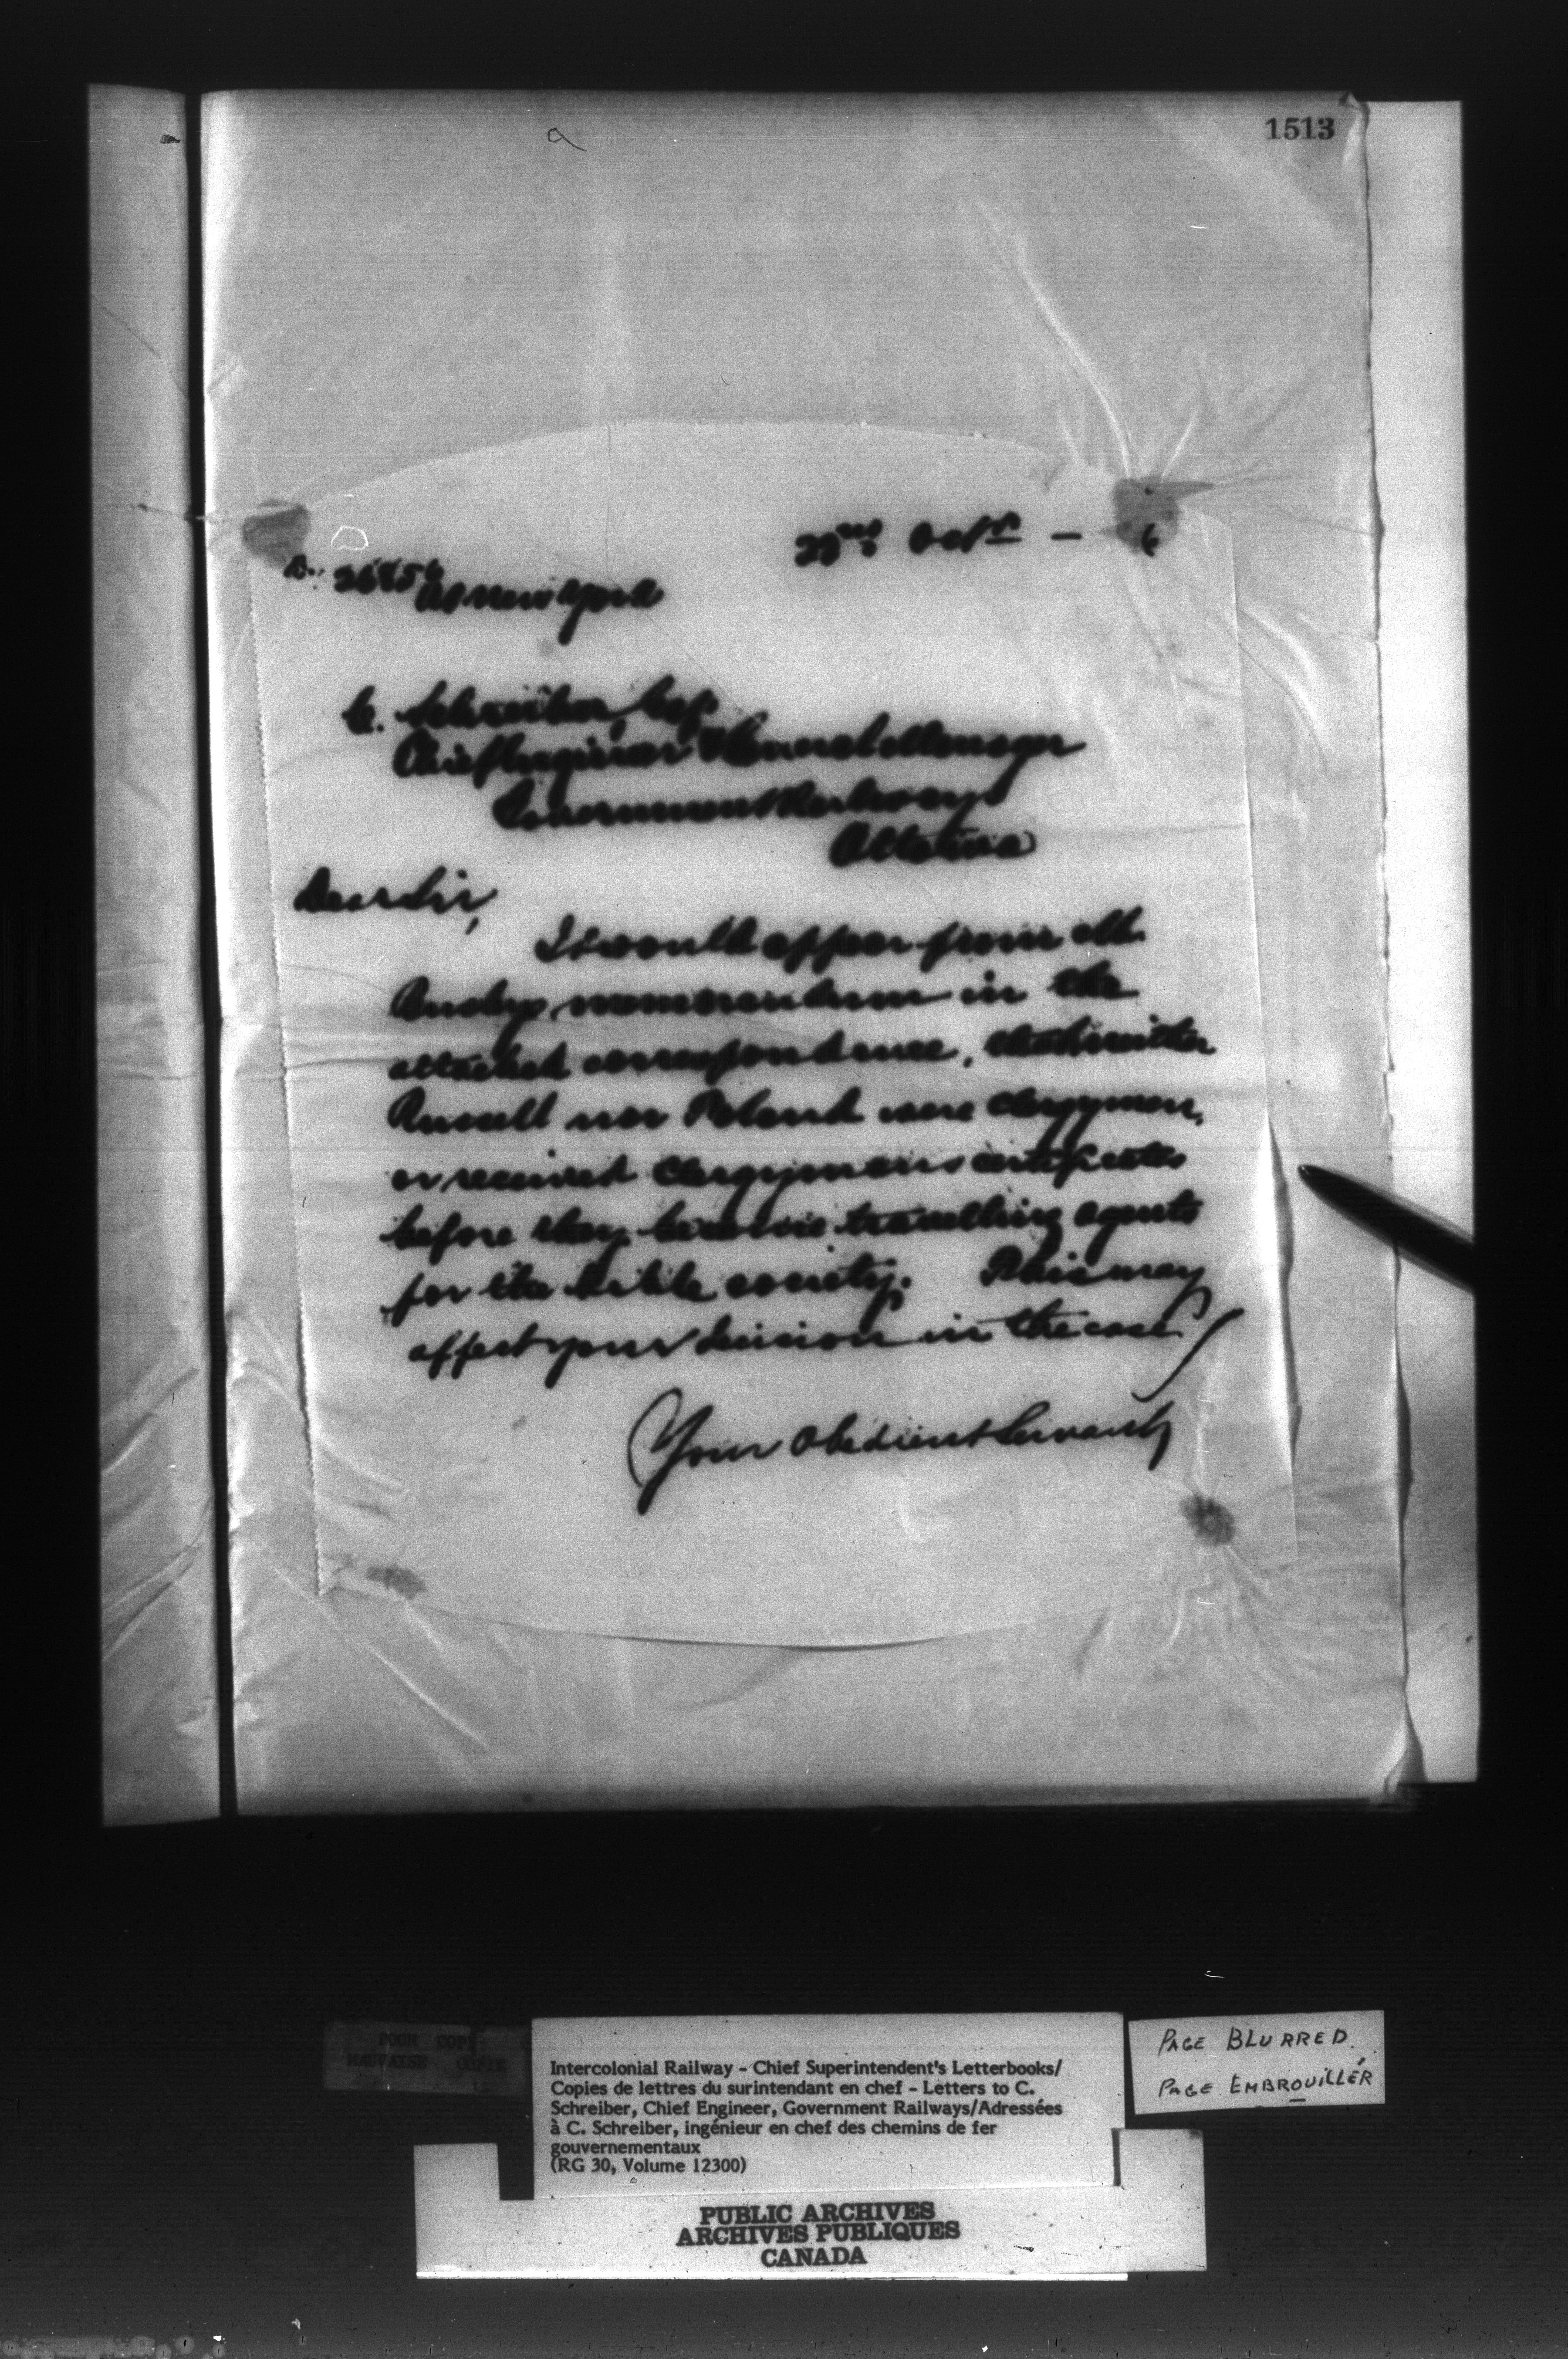 1513
22nd Octr — 6
C. Schreiber Esq
Chief Engineer & General Manager
Government Railways
Ottawa
Dear Sir,
It would appear from Mr.
Busby's memorandum in the
attached correspondence, that neither
Russell nor Poland were clergymen,
or received clergyman's certificates
before they became travelling agents
for the bible society. This may
affect your decision in the case
Your Obedient Servant
POOR COPY
MAUVAISE COPIE
Intercolonial Railway - Chief Superintendent's Letterbooks/
Copies de lettres du surintendant en chef - Letters to C.
Schreiber, Chief Engineer, Government Railways/Adressées
à C. Schreiber, ingénieur en chef des chemins de fer
gouvernementaux
(RG 30, Volume 12300)
PAGE BLURRED.
PAGE EMBROUILLÉR
PUBLIC ARCHIVES
ARCHIVES PUBLIQUES
CANADA